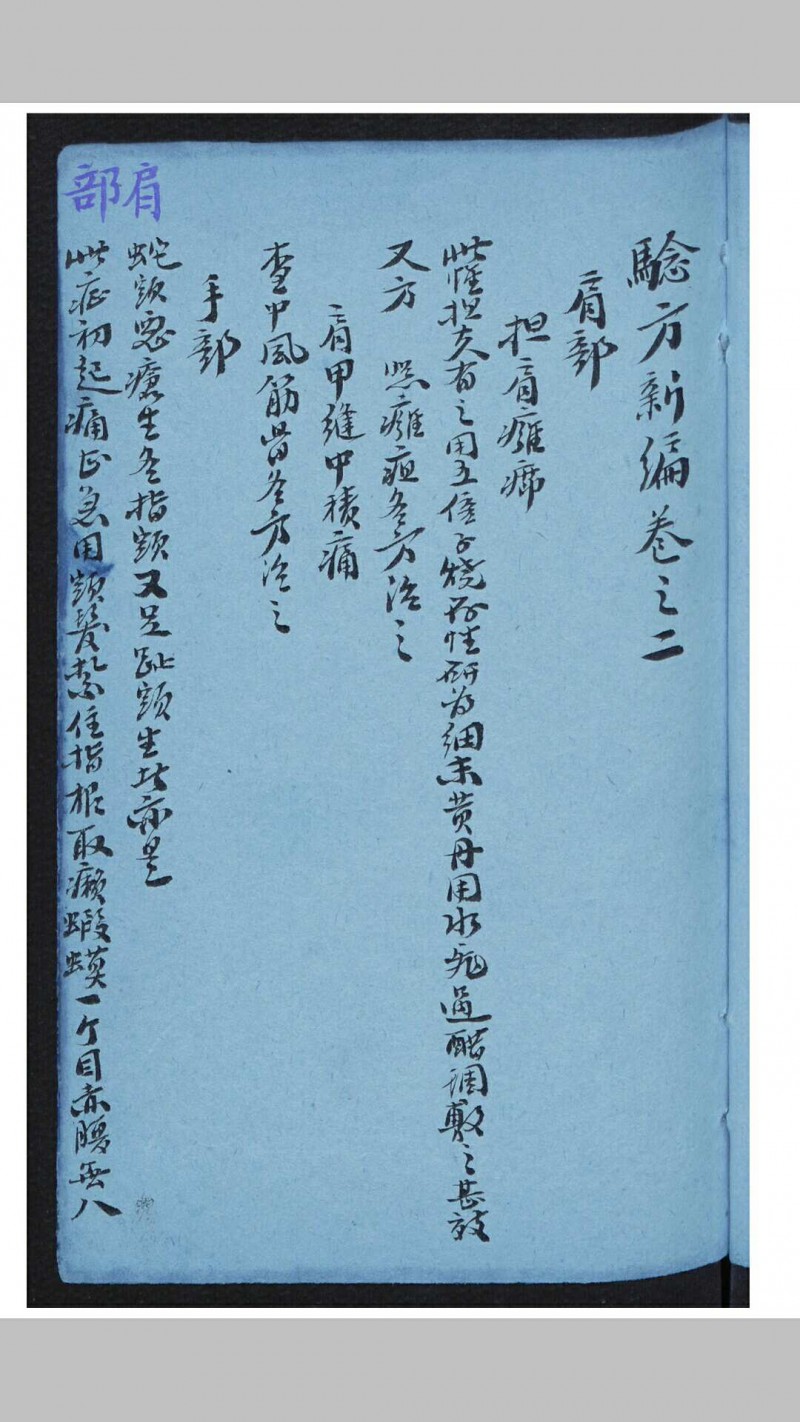 肩部
驗方新編卷之二
肩部
担肩癰瘍
此惟担夫有之用五倍子燒存性研為細末黄丹用水飛過醋調敷之甚效
又方 照癰疽各方治之
肩甲縫中積痛
查中風筋骨各方治之
手部
蛇頭惡瘡生各指頭又足趾頭生者亦是
此症初起痛甚急用頭髮紮住指根取癩蝦蟆一个目赤腰無八